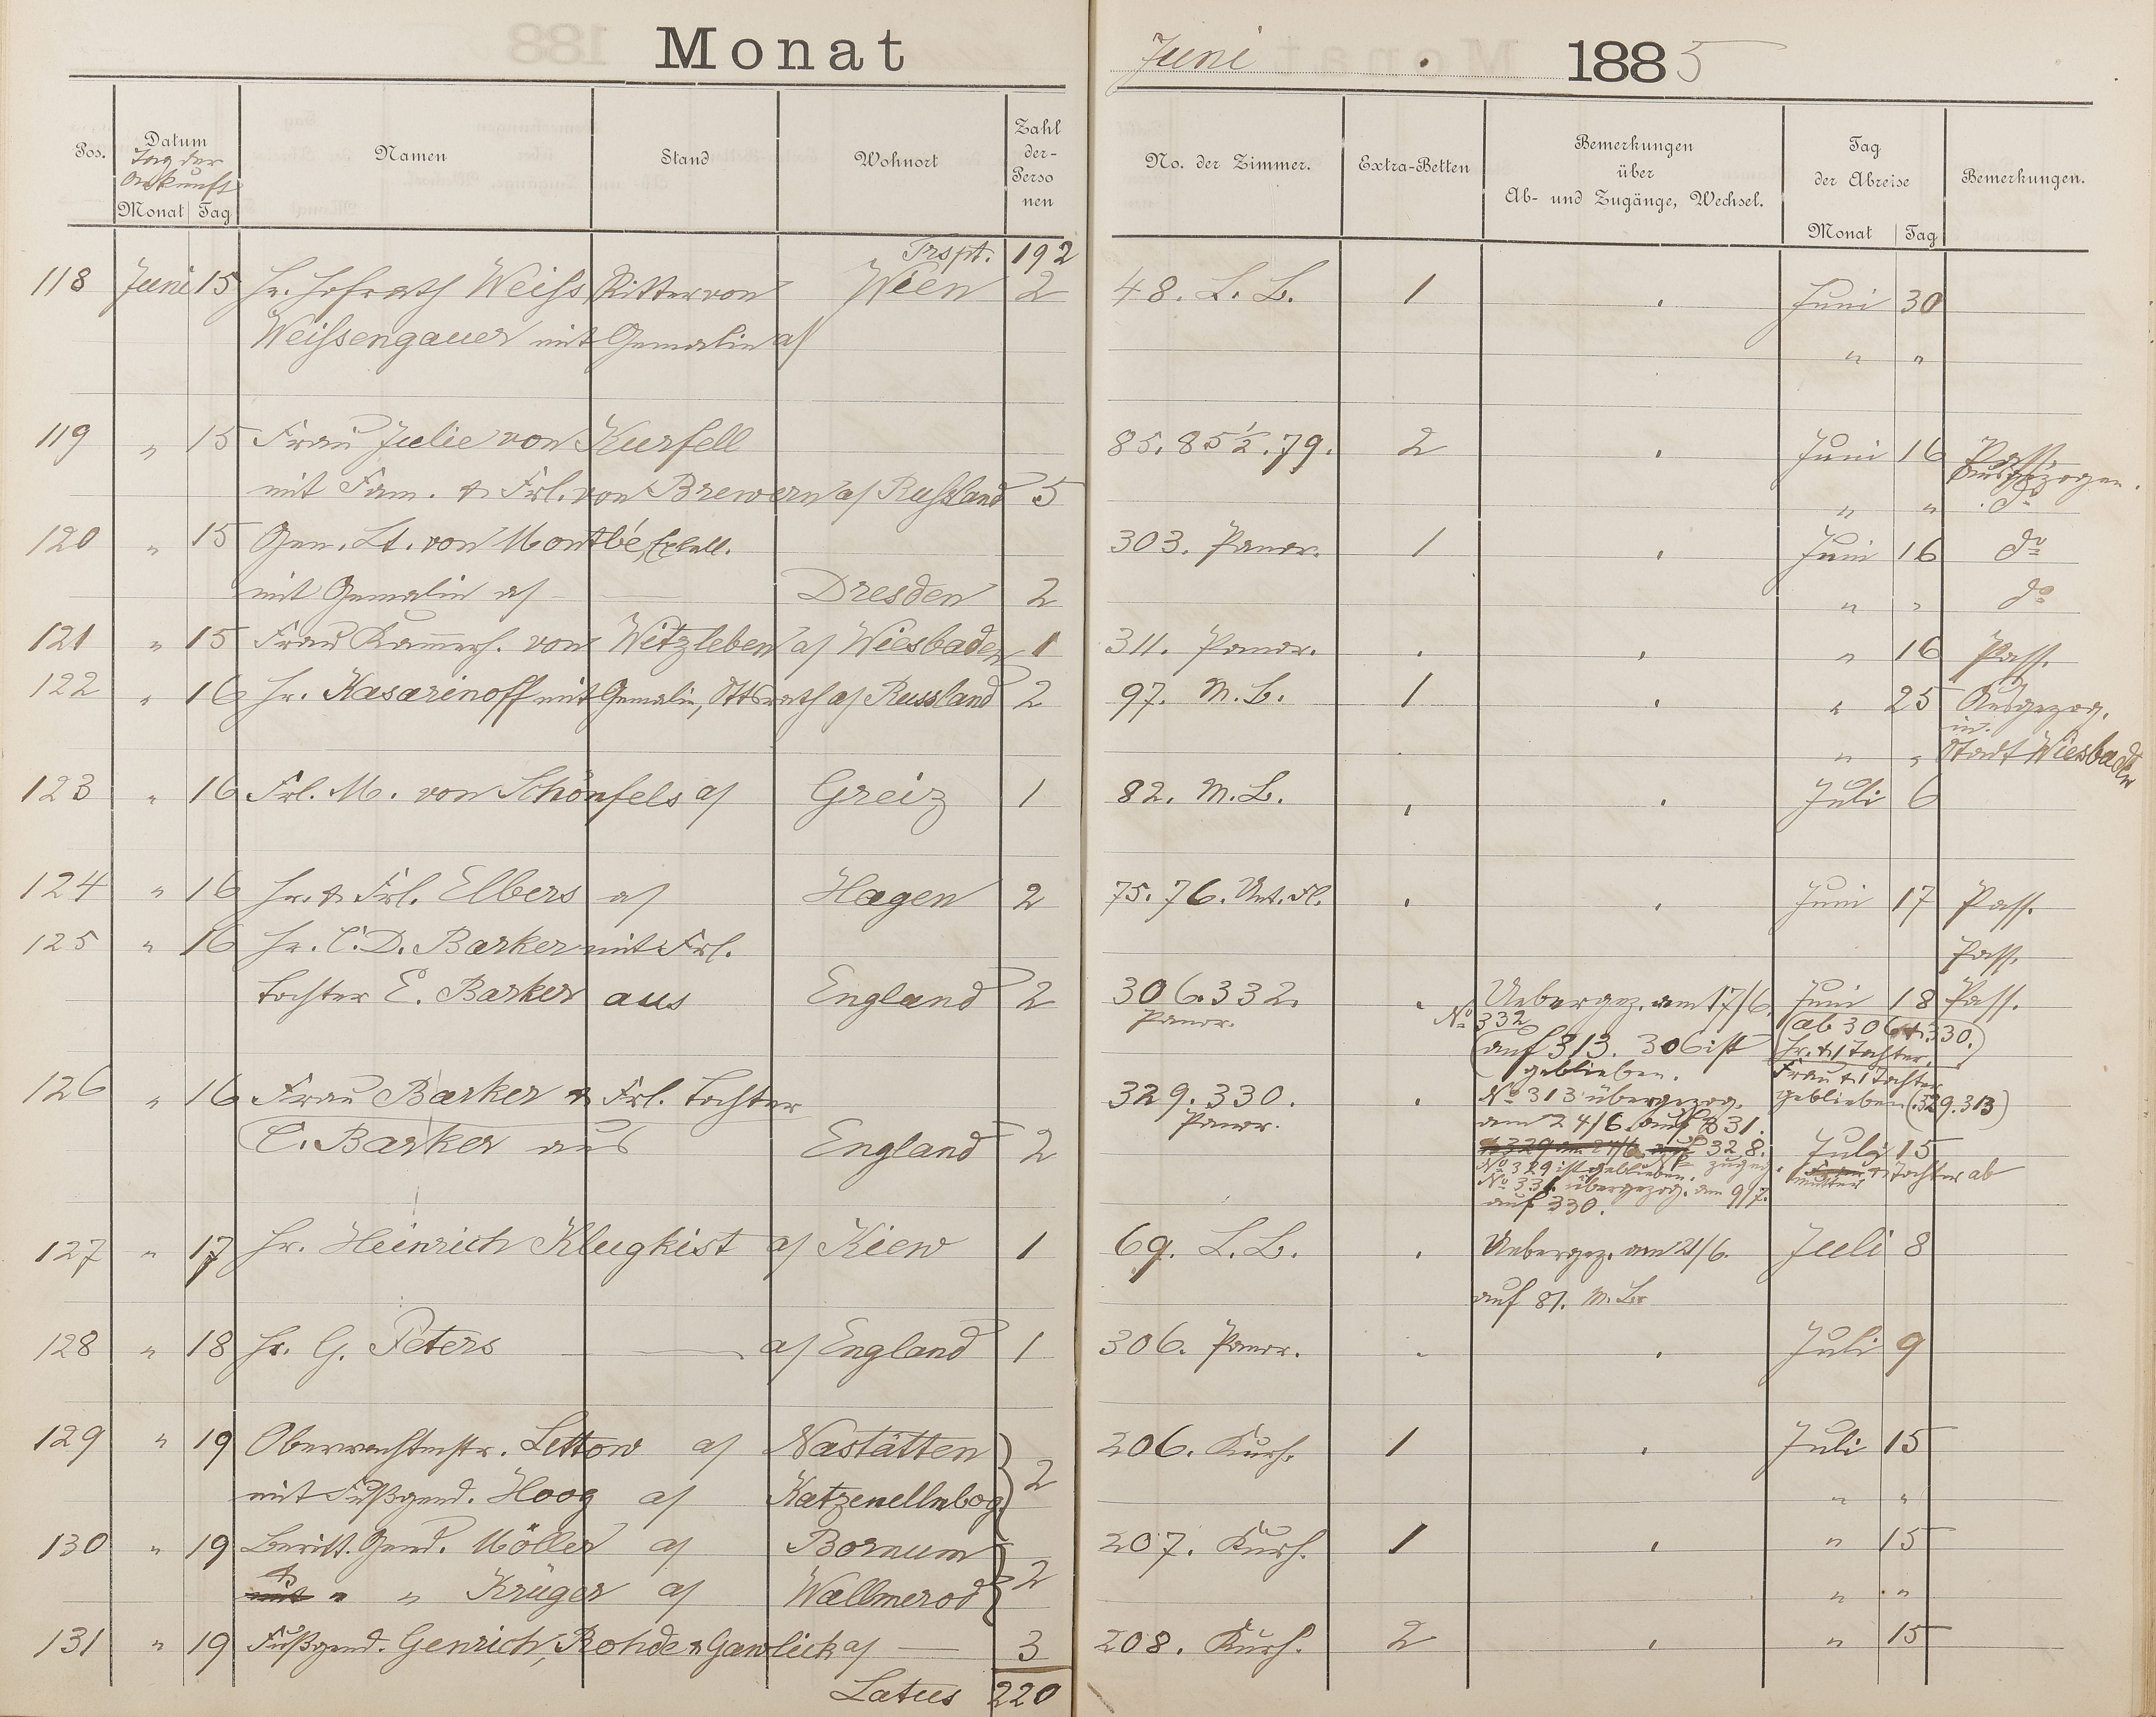 Monat Juni 1885
Pos. Datum Namen Stand Wohnort Zahl der Perso nen No. der Zimmer. Extra-Betten Bemerkungen über Ab- und Zugänge, Wechsel. Tag der Abreise Bemerkungen.
Tag der Ankunft
Monat Tag Monat Tag
Trspt. 192
118 Juni 15 Hr. Hofrath Weiss Ritter von Wien 2 48. L. B. 1 Juni 30
Weissengauer mit Gemalin a/ " "
119 " 15 Frau Julie von Kursell 85. 85½. 79. 2 Juni 16 Pass. Ausgezogen.
mit Fam. & Frl. von Brewern a/ Russland 5 " " do
120 " 15 Gen. Lt. von Montbé, Excell. 303. Panor. 1 Juni 16 do
mit Gemalin a/ Dresden 2 " " do
121 " 15 Frau Kammerh. von Witzleben a/ Wiesbaden 1 311. Panor. " 16 Pass.
122 " 16 Hr. Kasarinoff mit Gemalin, Sttsrath a/ Russland 2 97. M. B. 1 " 25 Ausgezog.
in
" " Stadt Wiesbaden
123 " 16 Frl. M. von Schönfels a/ Greiz 1 82. M. B. Juli 6
124 " 16 Hr. & Frl. Elbers a/ Hagen 2 75. 76. Unt. Fl. Juni 17 Pass.
125 " 16 Hr. C. D. Barker mit Frl. Pass.
Tochter E. Barker aus England 2 306. 332. Uebergez. am 17/6. Juni 18 Pass.
Panor. No 332 (ab 306 & 330.
(auf 313. 306 ist Hr. & 1 Tochter.)
geblieben. Frau & 1 Tochter
126 " 16 Frau Barker & Frl. Tochter 329. 330. No 313 übergezog. geblieben (329. 313)
Panor. am 24/6. auf 331.
C. Barker aus England 2 328. July 15
No 329 ist geblieben. Mutter & Tochter ab
No 331. übergezog. am 9/7.
auf 330.
127 " 17 Hr. Heinrich Klugkist a/ Kiew 1 69. L. B. Uebergez. am 21/6. Juli 8
auf 81. M. B.
128 " 18 Hr. G. Peters a/ England 1 306. Panor. Juli 9
129 " 19 Oberwachtmstr. Lettow a/ Nastätten 206. Kurh. 1 Juli 15
mit Fußgend. Hoog a/ Katzenellnbog. 2 " "
130 " 19 Beritt. Gend. Möller a/ Bornum 207. Kurh. 1 " 15
& " " Krüger a/ Wallmerod 2 " "
131 " 19 Fußgend. Genrich, Rohde & Gawlick a/ 3 208. Kurh. 2 " 15
Latus 220